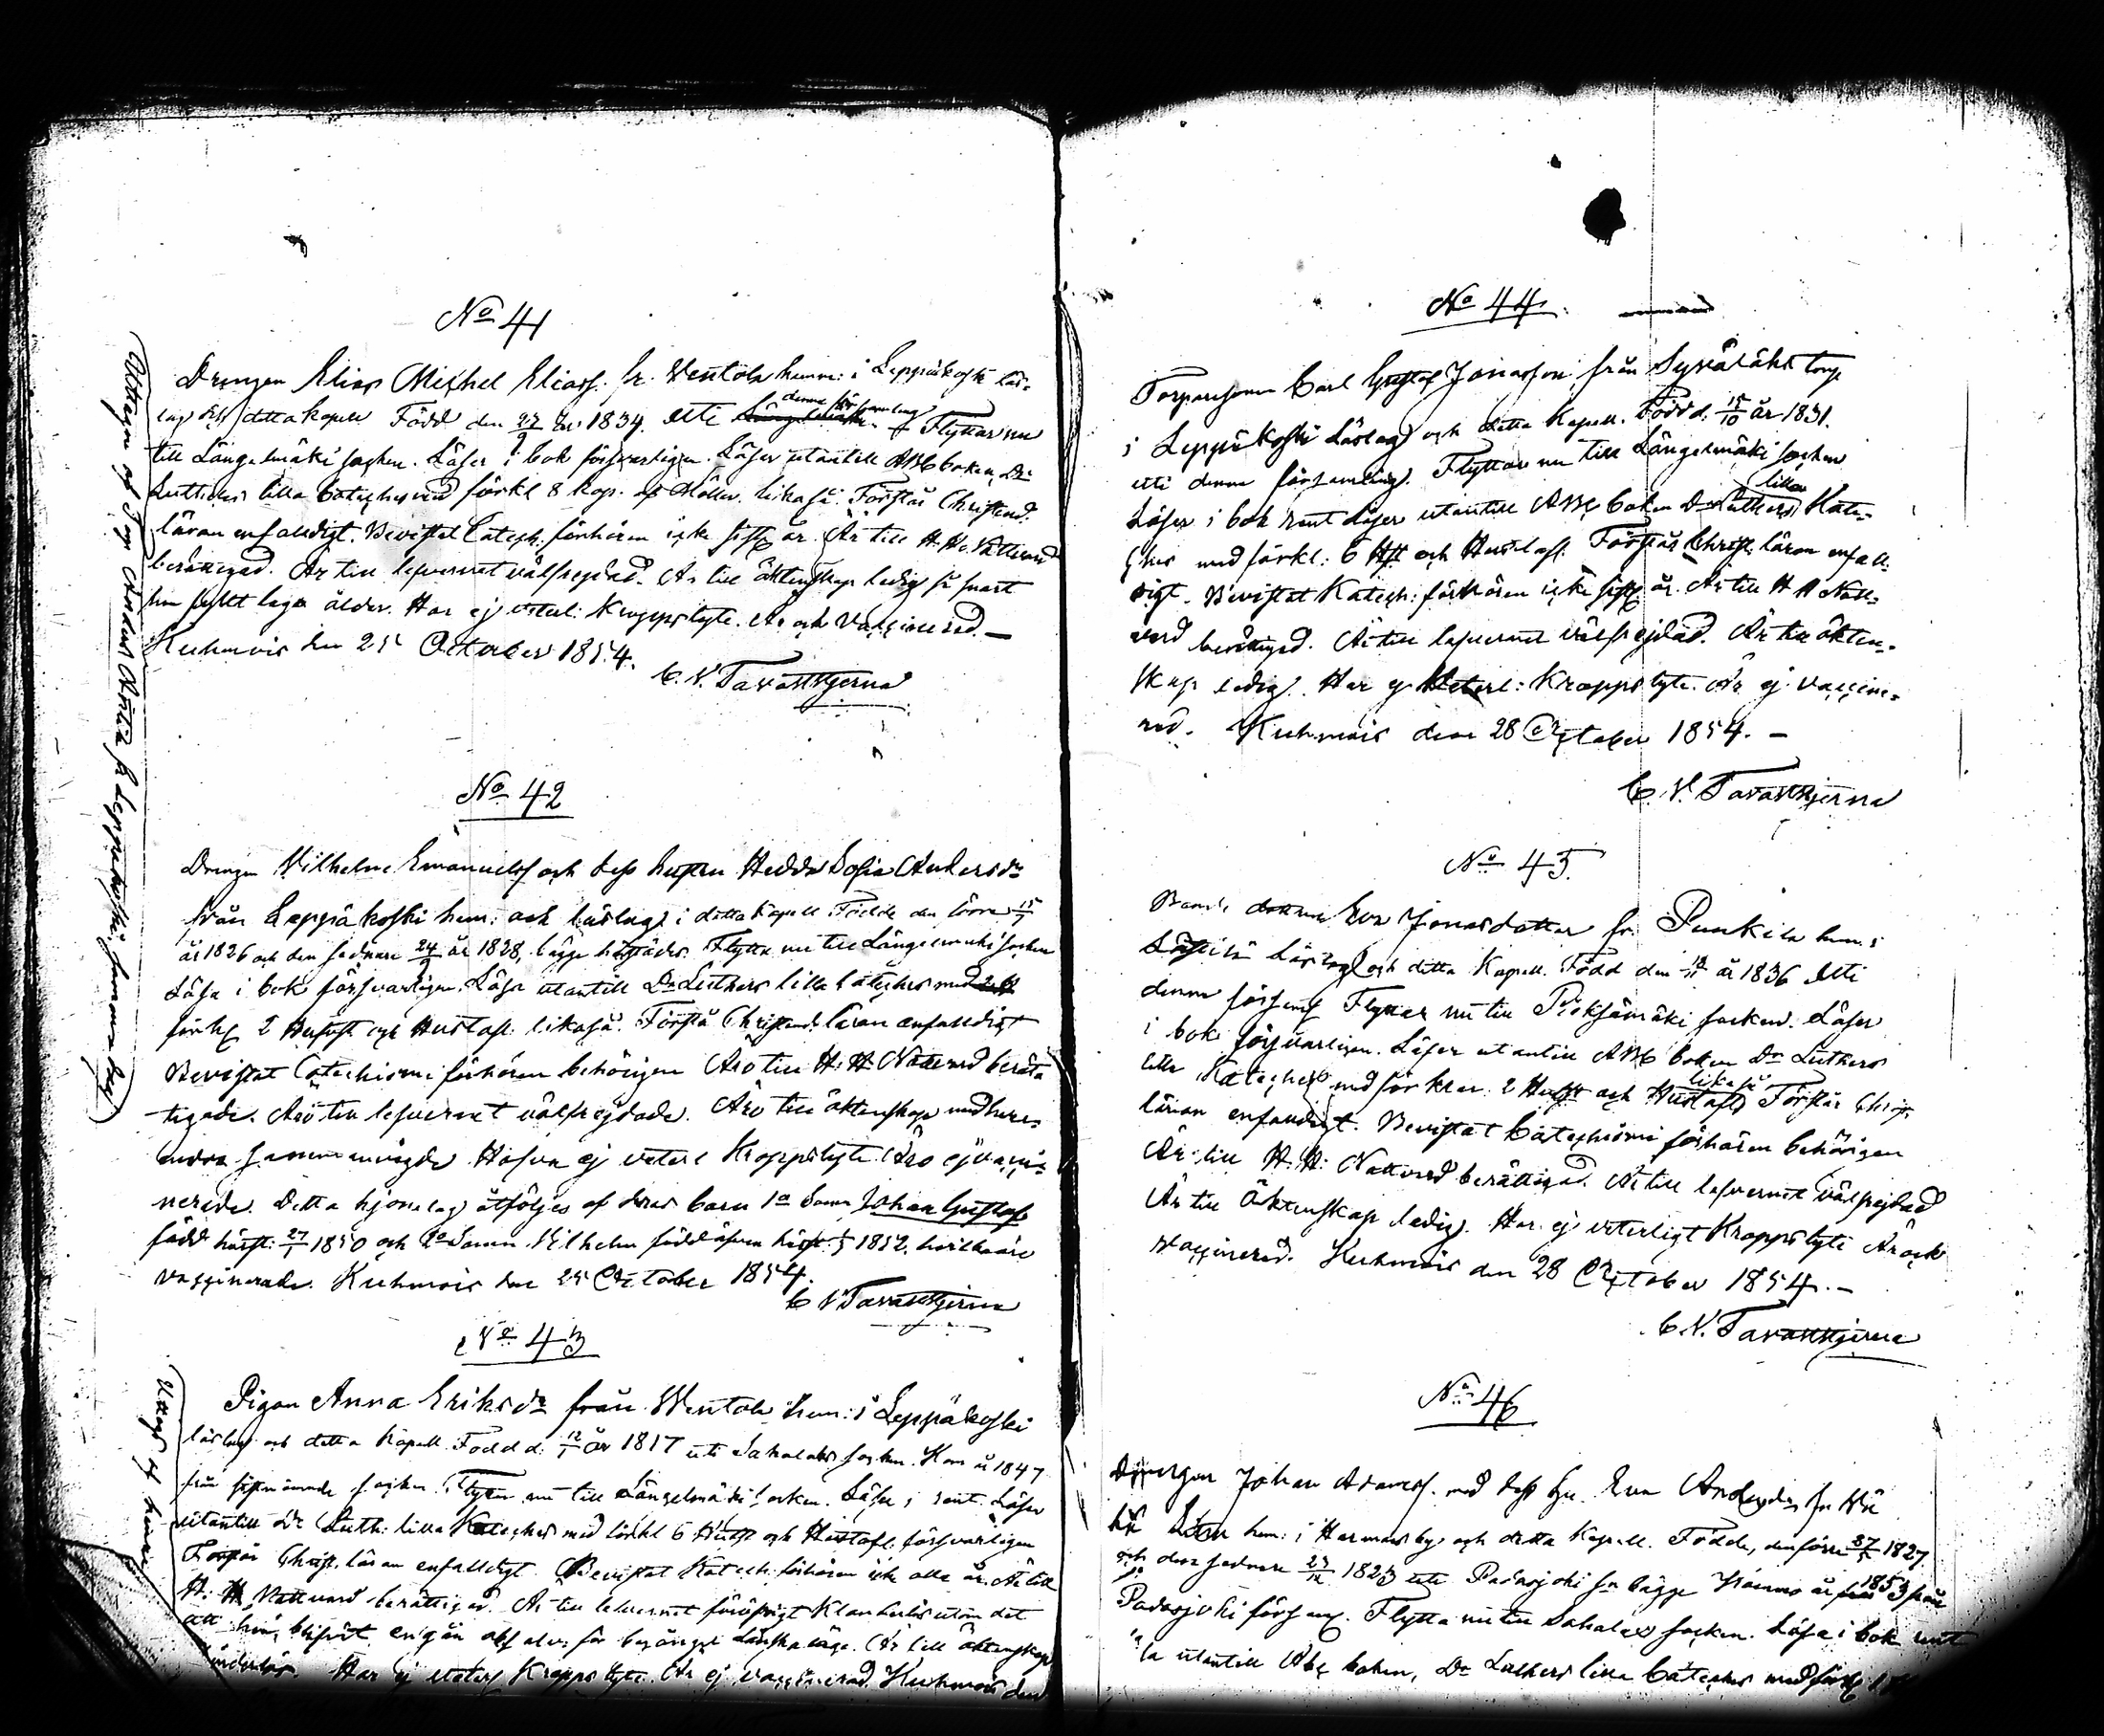 No 41
Drengen Elias Michel Eliass. fr. Ventola hemm: i Leppäkoski läs-
lag och detta kapell Född den 27/9 år 1834. uti denna församling Flyttar nu
till Längelmäki socken. Läser i bok försvarligen. Läser utantill ABC boken, Dr
Luthers lilla Cateches med förkl 8 kap. af Möller likaså. Förstår Christend.
läran enfalldigt. Bevistat Catech. förhören icke sist år. Är till H. H. Nattvard
berättigad. Är till lefvernet välfrejdad. Är till äktenskap ledig så snart
han fyllt laga ålder. Har ej veterl: Kroppslyte. Är och Vaccinerad. —
Kuhmois den 25 October 1854.
C. N. Tavaststjerna
No 42
Drengen Vilhelm Emanuelss och dess hustru Hedda Sofia Andersdr
från Leppäkoski hem: och läslag i detta Kapell Födde den förre 15/7
år 1826 och den sednare 24/9 år 1828, bägge härstädes. Flytta nu till Längelmäki socken
Läsa i bok försvarligen. Läsa utantill Dr Luthers lilla Cateches med
förkl 2 Hufvst och Hustafl. likaså. Förstå Christend. läran enfalldigt
Bevistat Catechismi förhören behörigen Äro till H. H. Nattvard berätt-
tigade. Äro till lefvernet välfrejdade. Äro till äktenskap med hvar-
andra sammanvigde Hafva ej veterl Kroppslyte. Äro ej vacci-
nerade. Detta hjonelag åtföljes af deras barn 1o Sonen Johan Gustaf
född härst. 27/1 1850 och 2o Sonen Vilhelm född äfven härst. 1852, hvilka äro
vaccinerade. Kuhmois den 25 October 1854.
C N Tavaststjerna
No 43
Pigan Anna Eriksdr från Wentola hem: i Leppäkoski
läslag och detta Kapell Född d. 12/1 år 1817 uti Sahalaks socken. Kom år 1847
från sistnämnde socken. Flyttar nu till Längelmäki socken. Läser i rent. Läser
utantill Dr Luth: lilla Kateches med förkl 6 Hufst och Hustafl. försvarligen
Förstår Christ. läran enfalldigt. Bevistat Katech: förhören icke alla år. Är till
H. H. Nattvard berättigad. Är till lefvernet föröfrigt klanderlös utom det
att hon blifvit en gång absolv. för begånget Lönskaläge. Är till äktenskap
hinderlös. Har ej veterl Kroppslyte. Är ej vaccinerad. Kuhmois den
No 44
Torparesonen Carl Gustaf Jonasson från Syväläks torp
i Leppäkoski Läslag och detta Kapell. Född d. 15/10 år 1831.
uti denna församling. Flyttar nu till Längelmäki socken
Läser i bok rent Läser utantill ABC boken Dr Luthers lilla Kate-
ches med förkl: 6 Hst och Hustafl. Förstår Christ. läran enfall-
digt. Bevistat Katech: förhören icke sist år. Är till H H Natt-
vard berättigad. Är till lefvernet välfrejdad. Är till äkten-
skap ledig. Har ej Veterl: Kroppslyte. Är ej vaccine-
rad. Kuhmois den 28 October 1854. —
C. N. Tavaststjerna
No 45
Eva Jonasdotter fr. Punkila hem: i
Läslag och detta Kapell. Född den år 1836 uti
denna förs: Flyttar nu till Pieksämäki socken. Läser
i bok försvarligen. Läser utantill ABC boken Dr Luthers
lilla Kateches med förklar. 2 Hufst och Hustafl. likaså Förstår Christ.
läran enfalldigt. Bevistat Catechismi förhören behörigen
Är till H. H. Nattvard berättigad. Är till lefvernet välfrejdad
Är till äktenskap ledig. Har ej veterligt Kroppslyte Är ock
vaccinerad. Kuhmois den 28 October 1854. —
C. N. Tavaststjerna
No 46
Drengen Johan Adamss. med dess hu. Eva Andersdr fr
hem: i Harmois by och detta Kapell. Födde, den förre 27/5 1827,
och den sednare 23/12 1823 uti Padasjoki sn bägge Komna år 1853 från
Padasjoki förs. Flytta nu till Sahalax socken. Läsa i bok rent
utantill Abc boken, Dr Luthers lilla Cateches med förkl